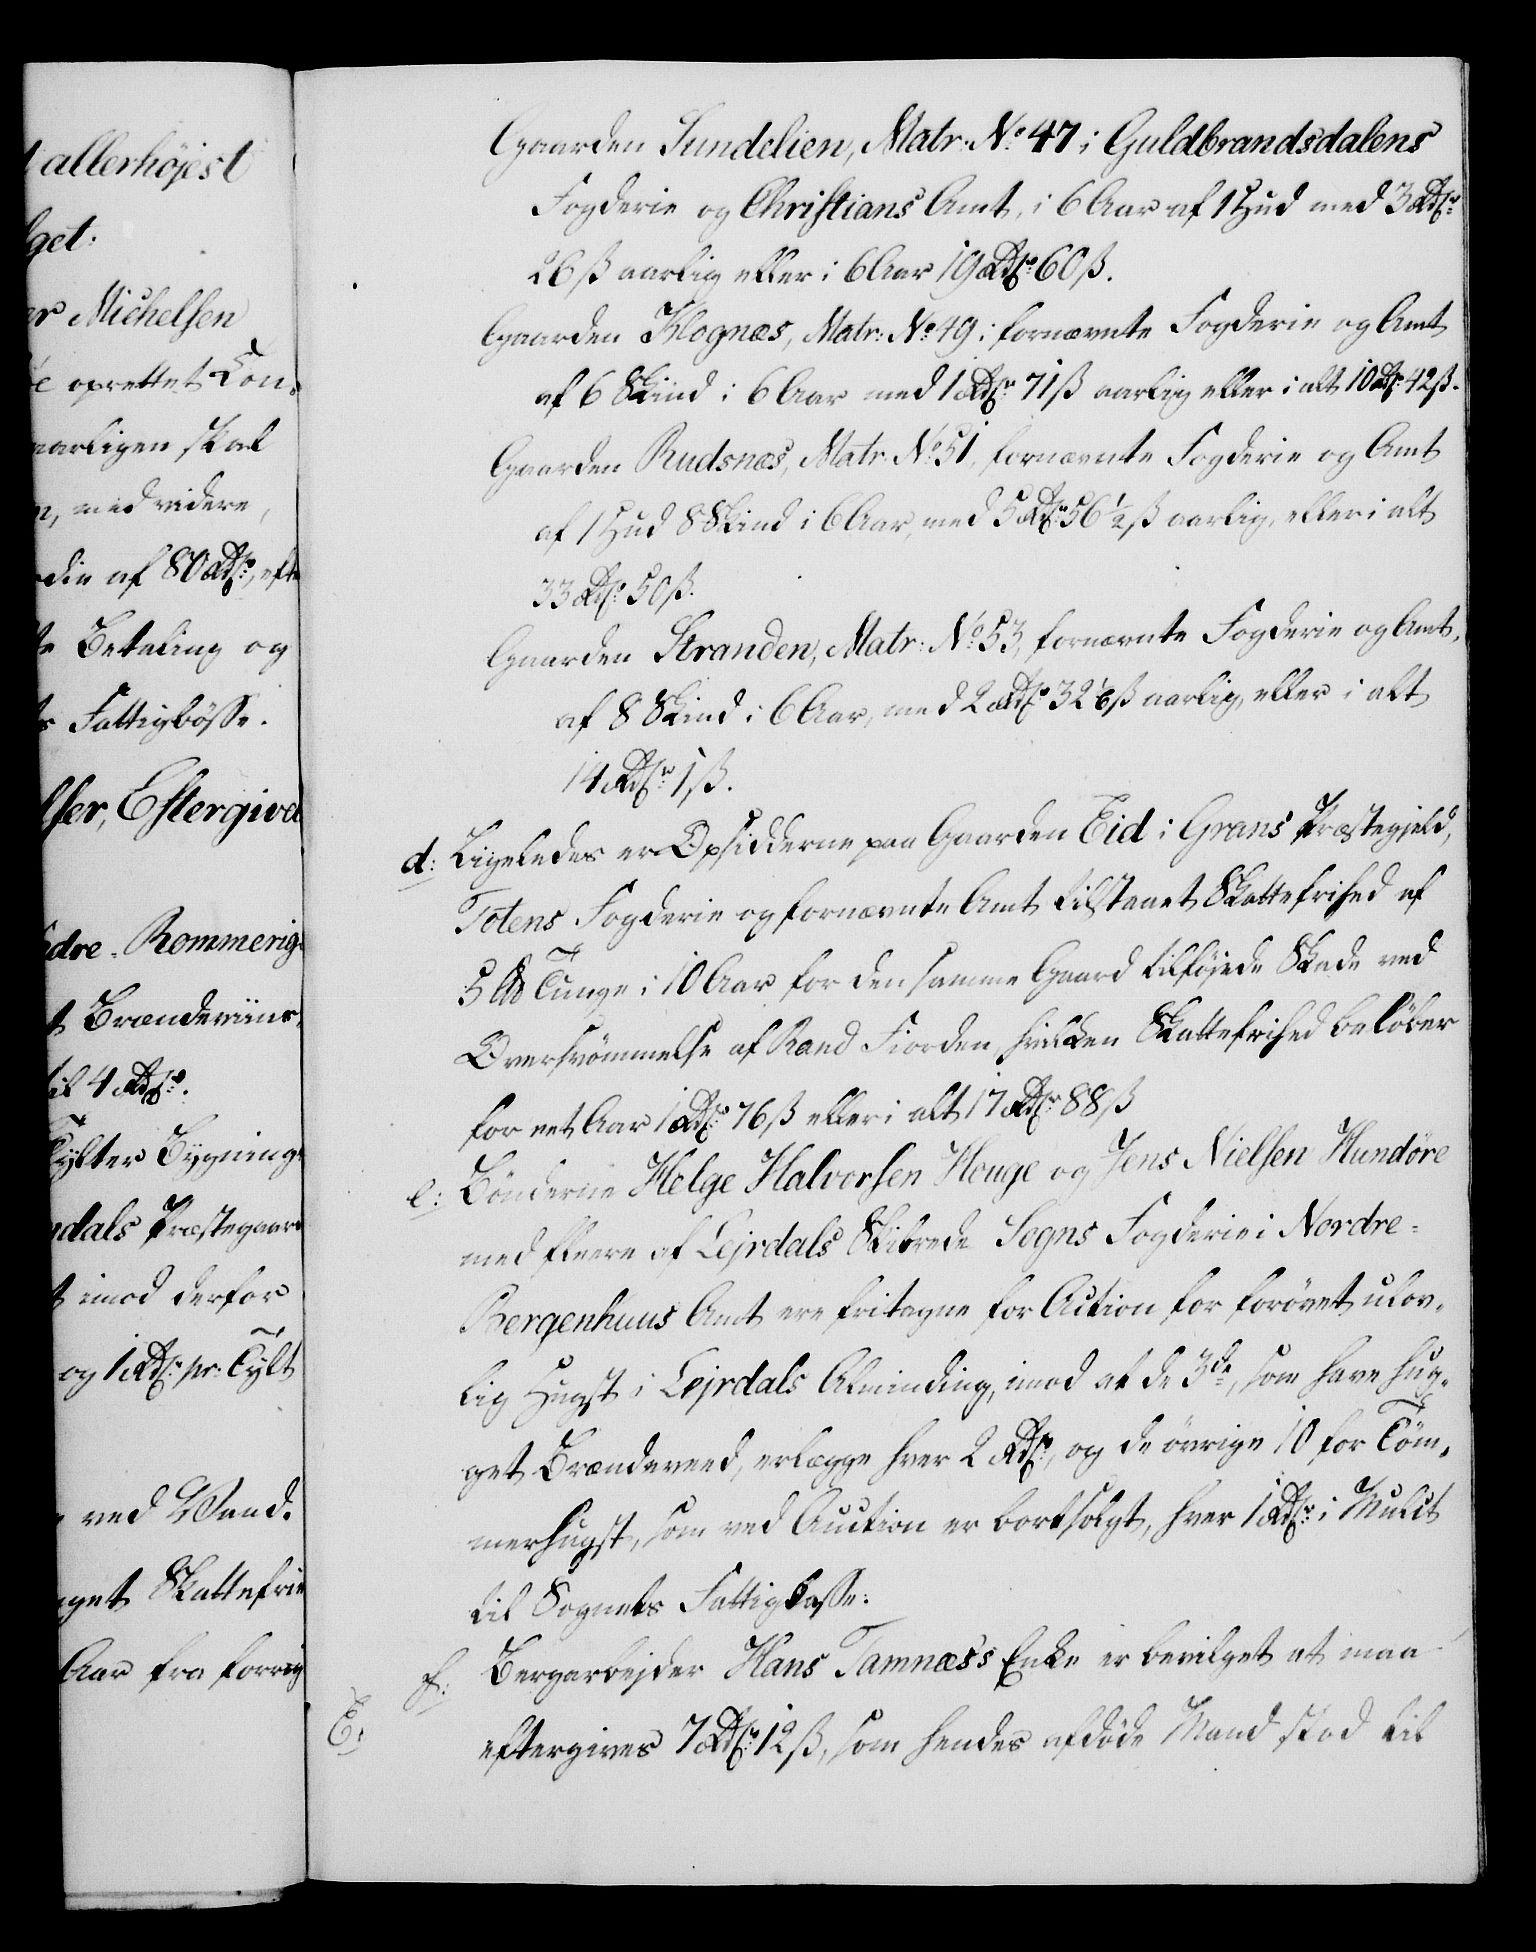 t allerhöjest
lget:
er Michelsen
te oprettet Con-
aarligen skal
n, med videre,
die af 80 Rdlr, efte
te Betaling og
ts Fattigbösse.
lser, Eftergivel
dre-Rommerig-
t Brændeviins-
til 4 Rdlr.
Tylter Bygnings
ndals Præstegaard
t imod derfor
og 1 Rdlr pr. Tylt
ved Vand-
get Skattefrie
Aar fra forrig
Gaarden Sundelien, Matr: No 47 i Guldbrandsdalens
Fogderie og Christians Amt, i 6 Aar af 1 Hud med 3 Rdlr
26 ß aarlig eller i 6 Aar 19 Rdlr 60 ß.
Gaarden Klognæs, Matr: No 49 i fornævnte Fogderie og Amt
af 6 Skind i 6 Aar med 1 Rdlr 71 ß aarlig eller i alt 10 Rdlr 42 ß.
Gaarden Rudsnæs, Matr: No 51, fornævnte Fogderie og Amt
af 1 Hud 8 Skind i 6 Aar, med 5 Rdlr 56 1/2 ß aarlig, eller i alt
33 Rdlr 50 ß.
Gaarden Stranden, Matr: No 53, fornævnte Fogderie og Amt,
af 8 Skind i 6 Aar, med 2 Rdlr 32 1/6 ß aarlig, eller i alt
14 Rdlr 1 ß.
d: Ligeledes er Opsidderne paa Gaarden Eid i Grans Præstegjeld,
Totens Fogderie og fornævnte Amt tilstaaet Skattefrihed af
5 Tunge i 10 Aar for den samme Gaard tilföjede Skade ved
Oversvömmelse af Rand Fiorden, hvilken Skattefrihed belöber
for eet Aar 1 Rdlr 76 ß eller i alt 17 Rdlr 88 ß
e: Bönderne Helge Halvorsen Houge og Jens Nielsen Hundöre
med fleere af Lejrdals Skibrede Sogns Fogderie i Nordre-
Bergenhuus Amt ere fritagne for Action for forövet ulov-
lig Hugst i Lejrdals Alminding, imod at de 3de, som have hug-
get Brændeveed, erlægge hver 2 Rdlr, og de övrige 10 for Töm-
merhugst, som ved Auction er bortsolgt, hver 1 Rdlr i Mulct
til Sognets Fattigkasse:
f: Bergarbejder Hans Tamnæss Enke er bevilget at maa
E:
eftergives 7 Rdlr 12 ß, som hendes afdöde Mand stod til